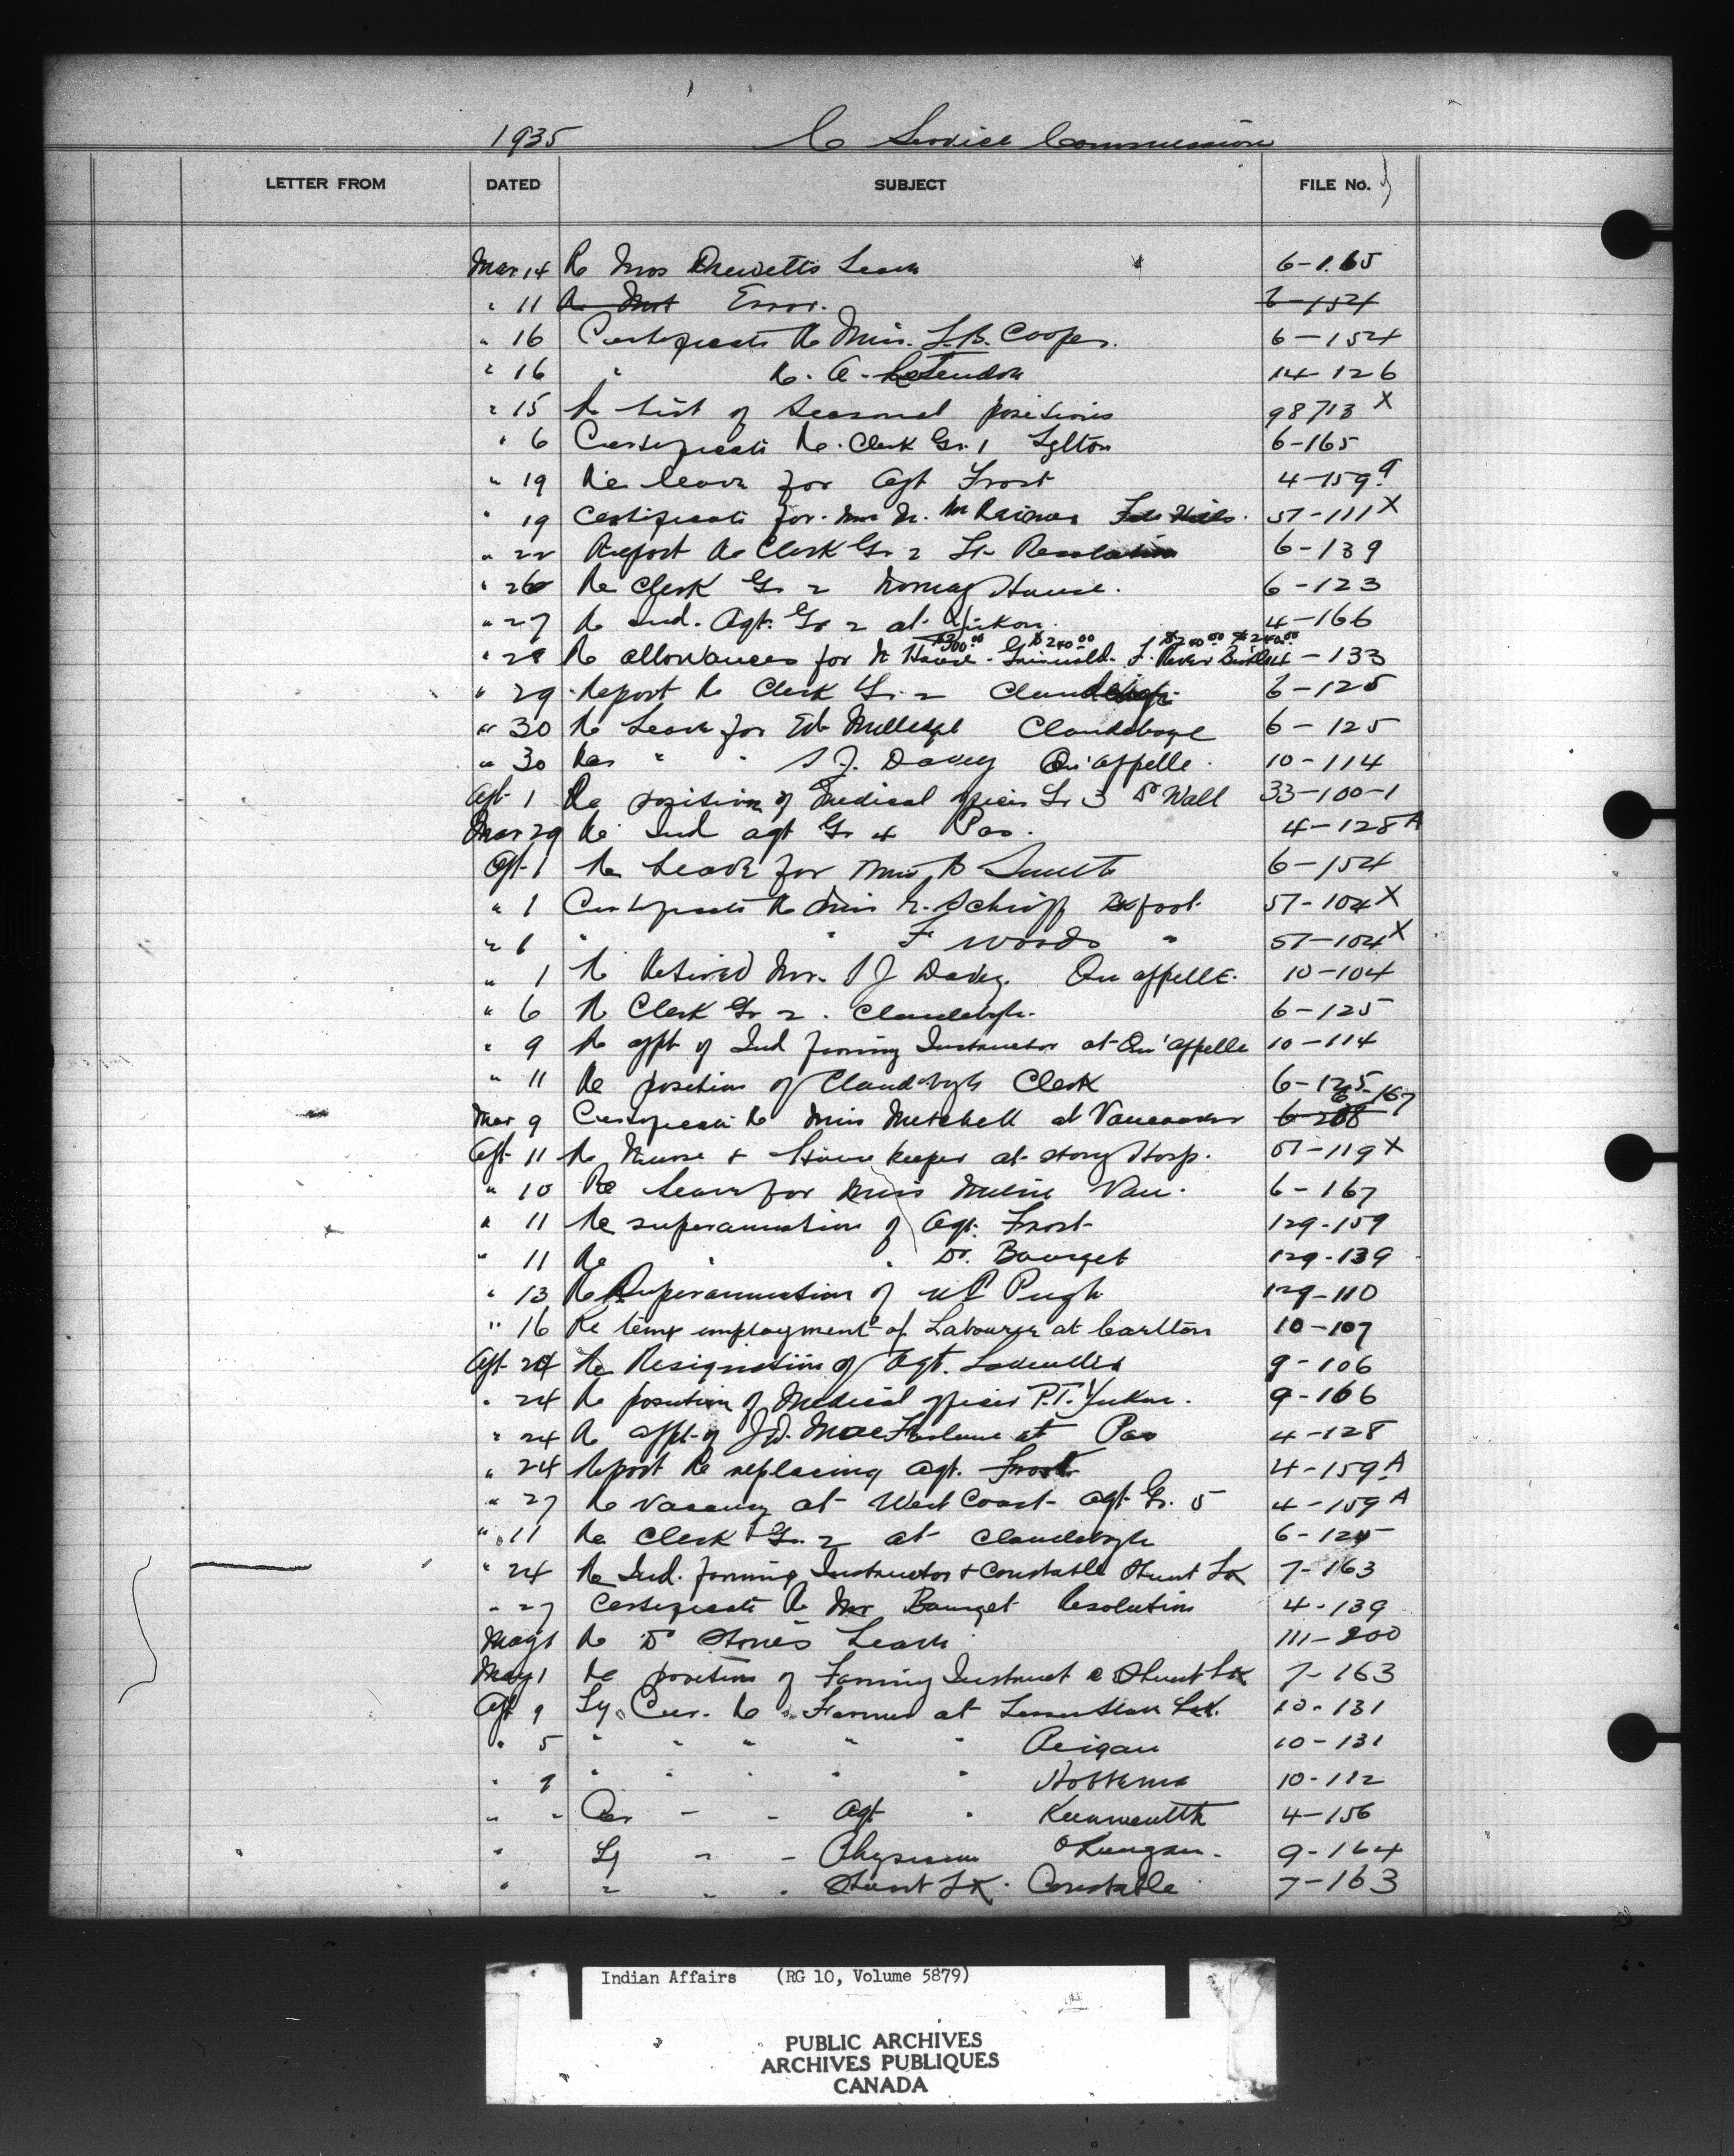 1935 C Service Commission
LETTER FROM DATED SUBJECT FILE No.
Mar 14 Re Mrs Drewetts Leave 6-165
" 11 Re Error. 6-154
" 16 Certificate Re Miss. L.B. Cooper. 6-154
" 16 " Re. A. 14-126
" 15 Re List of Seasonal positions 98713 X
" 6 Certificate Re. Clerk Gr. 1 Lytton 6-165
" 19 Re leave for Agt Frost 4-159
" 19 Certificate for. File Hills. 57-111 X
" 22 Report Re Clerk Gr 2 Ft Resolution 6-139
" 26 Re Clerk Gr 2 Norway House. 6-123
" 27 Re Ind. Agt. Gr 2 at Yukon. 4-166
$240.00 $240.00 $240.00
" 28 Re allowances for N House. Griswold. F. River 4-133
" 29 Report Re Clerk Gr. 2 Clandeboye 6-125
" 30 Re Leave for Ed Clandeboye 6-125
" 30 Re " " S J. Davey Qu'appelle. 10-114
Apt 1 Re position of Medical officer Gr 3 Dr Wall 33-100-1
Mar 29 Re Ind agt Gr 4 Pas. 4-128 A
Apt-1 Re Leave for Miss B Smith 6-154
" 1 Certificate Re Miss E. Schiff 57-104 X
" 1 " " F Woods " 57-104 X
" 1 Re Retired Mr. S J Davey. Qu appelle. 10-104
" 6 Re Clerk Gr 2. Clandeboye. 6-125
" 9 Re appt of Ind farming Instructor at Qu'appelle 10-114
" 11 Re position of Clandeboye Clerk 6-125
Mar 9 Certificate Re Miss Mitchell at Vancouver 6-208 6-167
Apt 11 Re Nurse + House keeper at Stony Hosp. 57-119 X
" 10 Re Leave for Miss Milne Van. 6-167
" 11 Re superannuation of Agt. Frost 129-159
" 11 Re " " Dr. Bourget 129-139
" 13 Re Superannuation of W P Pugh 129-110
" 16 Re temp employment of Labourer at Carlton 10-107
Apt 24 Re Resignation of Agt. 9-106
" 24 Re position of Medical officer P.T. Yukon. 9-166
" 24 Re appt of J.W. MacFarlane at Pas 4-128
" 24 Report Re replacing Agt. Frost 4-159 A
" 27 Re vacancy at West Coast agt Gr. 5 4-159 A
" 11 Re Clerk Gr. 2 at Clandeboye 6-125
" 24 Re Ind. farming Instructor + Constable Stuart Lk 7-163
" 27 Certificate Re Mr Bourget Resolution 4-139
May 1 Re Dr Stones Leave 111-200
May 1 Re position of Farming Instruct Stuart Lk 7-163
Apt 9 Cer. Re Farmer at 10-131
" 5 " " " " " Peigan 10-131
" 9 " " " " " Hobbema 10-112
" " Cer " " Agt " Kwawkewlth 4-156
" " " Physician Okanagan. 9-164
" " " " Stuart Lk. Constable 7-163
Indian Affairs (RG 10, Volume 5879)
PUBLIC ARCHIVES
ARCHIVES PUBLIQUES
CANADA